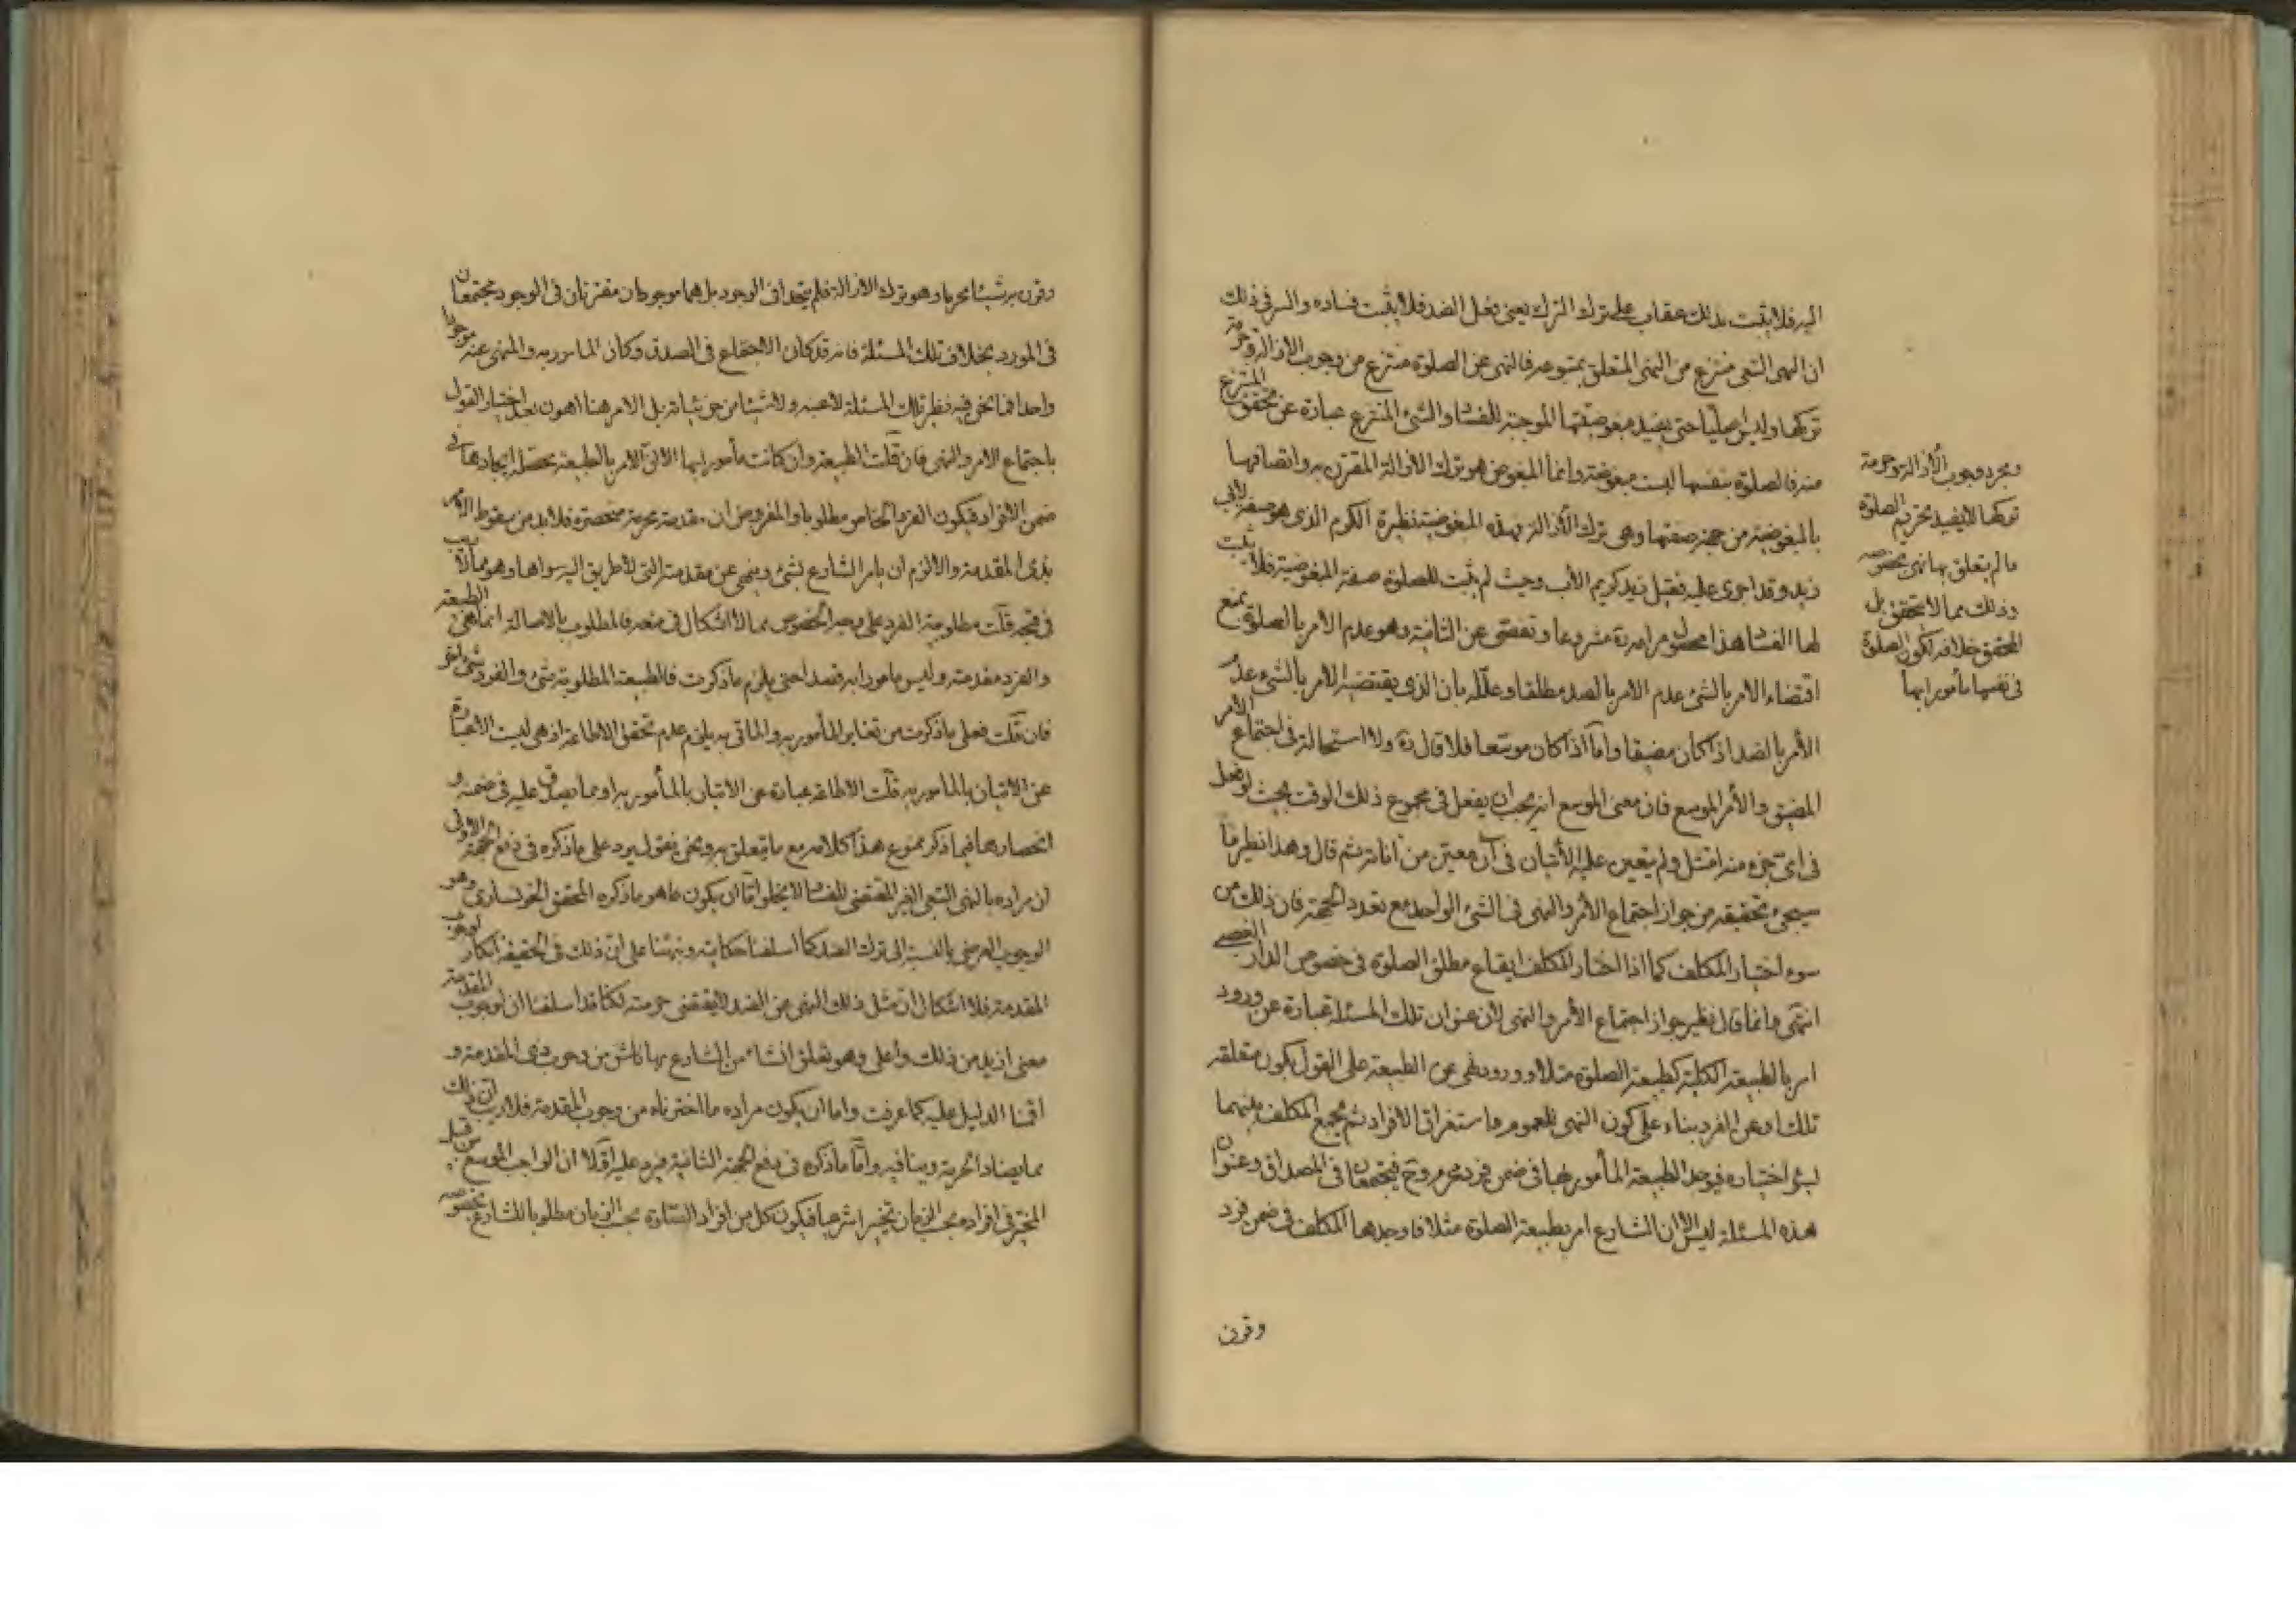 اليه فلا يثبت بذلك عقاب على ترك الترك يعني فعل الضد فلا يثبت فساده والسر في ذلك
ان النهى التبعى منتزع من النهى المتعلق بمتبوعه فالنهى عن الصلوة منتزع من وجوب الازالة وحرمة
تركها وليس اصليا حتى يفيد مبغوضيتها الموجبة للفساد والشئ المنتزع عبارة عن تحقق المنتزع
منه فالصلوة بنفسها ليست مبغوضة وانما المبغوض هو ترك الازالة المقترن به واتصافها
بالمبغوضية من جهة صفتها وهى ترك الازالة بهذه المبغوضية نظيرة الكرم الذى هو صفة لأب
زيد وقد اجرى عليه فقيل زيد كريم الأب وحيث لم يثبت للصلوة صفة المبغوضية فلا يثبت
لها الفساد هذا محصل مرامه ره مشروعا وتفصى عن الثانية وهو عدم الامر بالصلوة بمنع
اقتضاء الامر بالشئ عدم الامر بالضد مطلقا وعلله بان الذى يقتضيه الامر بالشئ عدم
الأمر بالضد اذا كان مضيقا واما اذا كان موسعا فلا قال ره ولا استحالة فى اجتماع الامر
المضيق والأمر الموسع فان معنى الموسع انه يجب ان يفعل فى مجموع ذلك الوقت بحيث لو فعل
فى اى جزء منه امتثل ولم يتعين عليه الأتيان فى آن معين من آناته ثم قال وهذا نظير ما
سيجئ تحقيقه من جواز اجتماع الأمر والنهى فى الشئ الواحد مع تعدد الجهة فان ذلك من
سوء اختيار المكلف كما اذا اختار المكلف ايقاع مطلق الصلوة فى خصوص الدار الغصبى
انتهى وانما قال نظير جواز اجتماع الأمر والنهى لأن عنوان تلك المسئلة عبارة عن ورود
امر بالطبيعة الكلية كطبيعة الصلوة مثلا وورود نهى عن الطبيعة على القول بكون متعلقه
تلك او عن الفرد بناء على كون النهى للعموم واستغراق الافراد ثم يجمع المكلف بينهما
بسوء اختياره فيوجد الطبيعة المأمور بها فى ضمن فرد محرم وح فيجتمعان فى المصداق وعنوان
هذه المسئلة ليس الا ان الشارع امر بطبيعة الصلوة مثلا فاوجدها المكلف فى ضمن فرد
وقرن
ومجرد وجوب الأزالة وحرمة
تركها لا يفيد تحريم الصلوة
ما لم يتعلق بها نهى بخصوصه
وذلك مما لا يتحقق بل
المحقق خلافه لكون الصلوة
فى نفسها مأمورا بها
وقرن به شيئا محرما وهو ترك الازالة فلم يتحدا فى الوجود بل هما موجودان مقترنان فى الوجود مجتمعان
فى المورد بخلاف تلك المسئلة فانه قد كان الاجتماع فى الصدق وكان المامور به والمنهى عنه موجودا
واحدا فما نحن فيه نظير تلك المسئلة لا عينه ولا شيئا من جزئياته بل الامر هنا اهون بعد اختيار القول
باجتماع الامر والنهى فان قلت الطبيعة وان كانت مأمورا بها الا ان الامر بالطبيعة يحصل ايجادها فى
ضمن الافراد فيكون الفرد الخاص مطلوبا والمفروض ان مقدمته محرمة منحصرة فلا بد من سقوط الامر
بذى المقدمة والا لزم ان يامر الشارع بشئ وينهى عن مقدمته التى لا طريق اليه سواها وهو مما لا ريب
فى قبحه قلت مطلوبية الفرد على وجه الخصوص مما لا اشكال فى منعه فالمطلوب بالاصالة انما هى الطبيعة
والفرد مقدمته وليس مامورا به قصدا حتى يلزم ما ذكرت فالطبيعة المطلوبة شئ والفرد شئ اخر
فان قلت فعلى ما ذكرت من تغاير المأمور به والماتى به يلزم عدم تحقق الاطاعة اذ هى ليست الا عبارة
عن الاتيان بالمامور به قلت الاطاعة عبارة عن الاتيان بالمأمور به او مما يصدق عليه فى ضمنه و
انحصارها فيما ذكر ممنوع هذا كلامه مع ما يتعلق به ونحن نقول يرد على ما ذكره فى دفع الجهة الاولى
ان مراده بالنهى التبعى الغير المقتضى للفساد لا يخلو اما ان يكون ما هو ما ذكره المحقق الخونسارى وهو
الوجوب العرضى بالنسبة الى ترك الضد كما اسلفنا حكايته ونبهنا على ان ذلك فى الحقيقة انكار لوجوب
المقدمة فلا اشكال ان مثل ذلك النهى عن الضد لا يقتضى حرمته لكنا قد اسلفنا ان لوجوب المقدمة
معنى ازيد من ذلك واعلى وهو تعلق انشاء من الشارع بها ناش من وجوب ذى المقدمة و
اقمنا الدليل عليه كما عرفت واما ان يكون مراده ما اخترناه من وجوب المقدمة فلا ريب ان ذلك
مما يضاد الحرمة وينافيه واما ما ذكره فى دفع الجهة الثانية فيرد عليه اولا ان الواجب الموسع من قبيل
المخير فى افراده بحسب الزمان تخييرا شرعيا فيكون كل من افراد الستارة بحسب الزمان مطلوبا للشارع بخصوصه